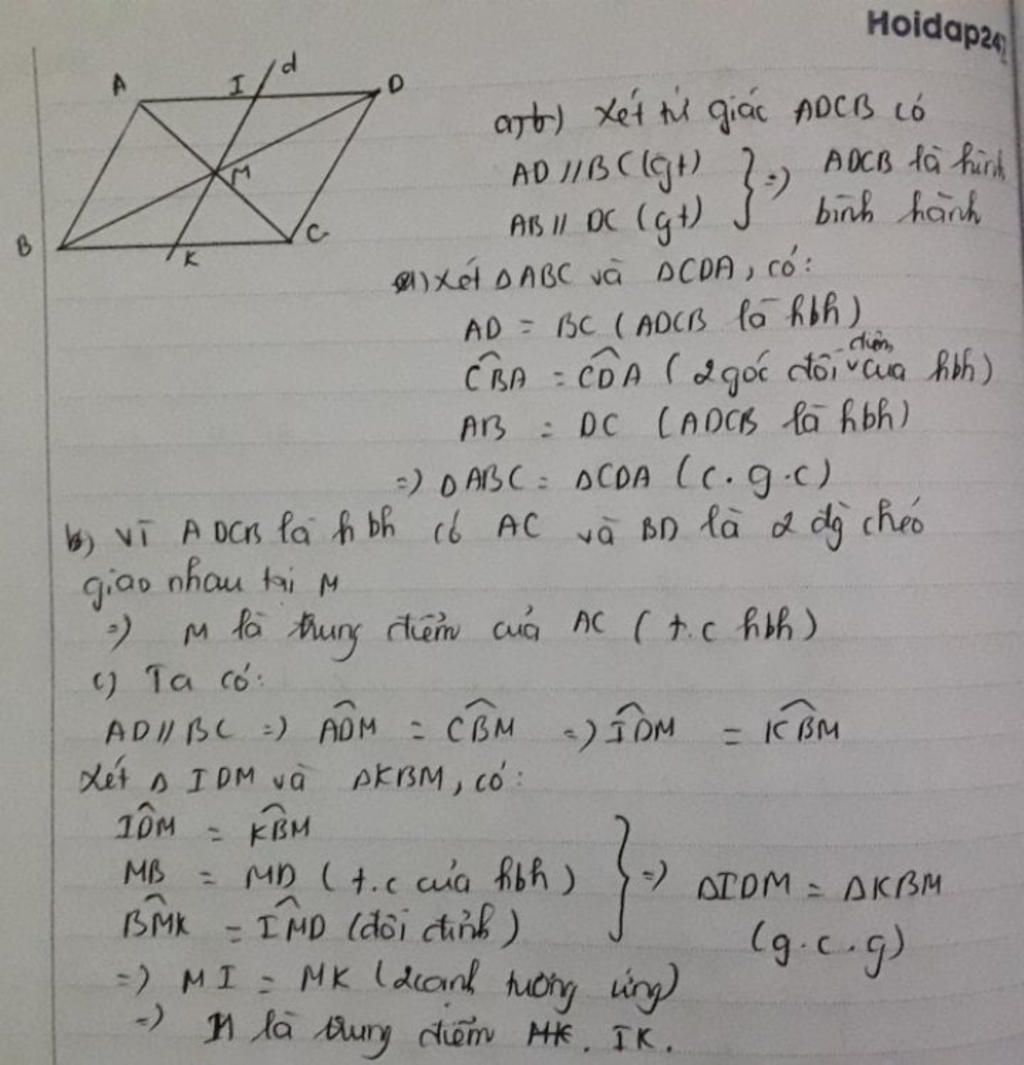 Hoidap247
A I d D
M
B K C
a,b) Xét tứ giác ADCB có
AD // BC (gt)
AB // DC (gt) } => ADCB là hình bình hành
a) Xét ΔABC và ΔCDA, có:
AD = BC (ADCB là hbh)
CBA = CDA (2 góc đối diện của hbh)
AB = DC (ADCB là hbh)
=> ΔABC = ΔCDA (c.g.c)
b) Vì ADCB là hbh có AC và BD là 2 đg chéo
giao nhau tại M
=> M là trung điểm của AC (t.c hbh)
c) Ta có:
AD // BC => ADM = CBM => IDM = KBM
Xét Δ IDM và ΔKBM, có:
IDM = KBM
MB = MD (t.c của hbh) } => ΔIDM = ΔKBM
BMK = IMD (đối đỉnh) (g.c.g)
=> MI = MK (2 cạnh tương ứng)
=> M là trung điểm IK.